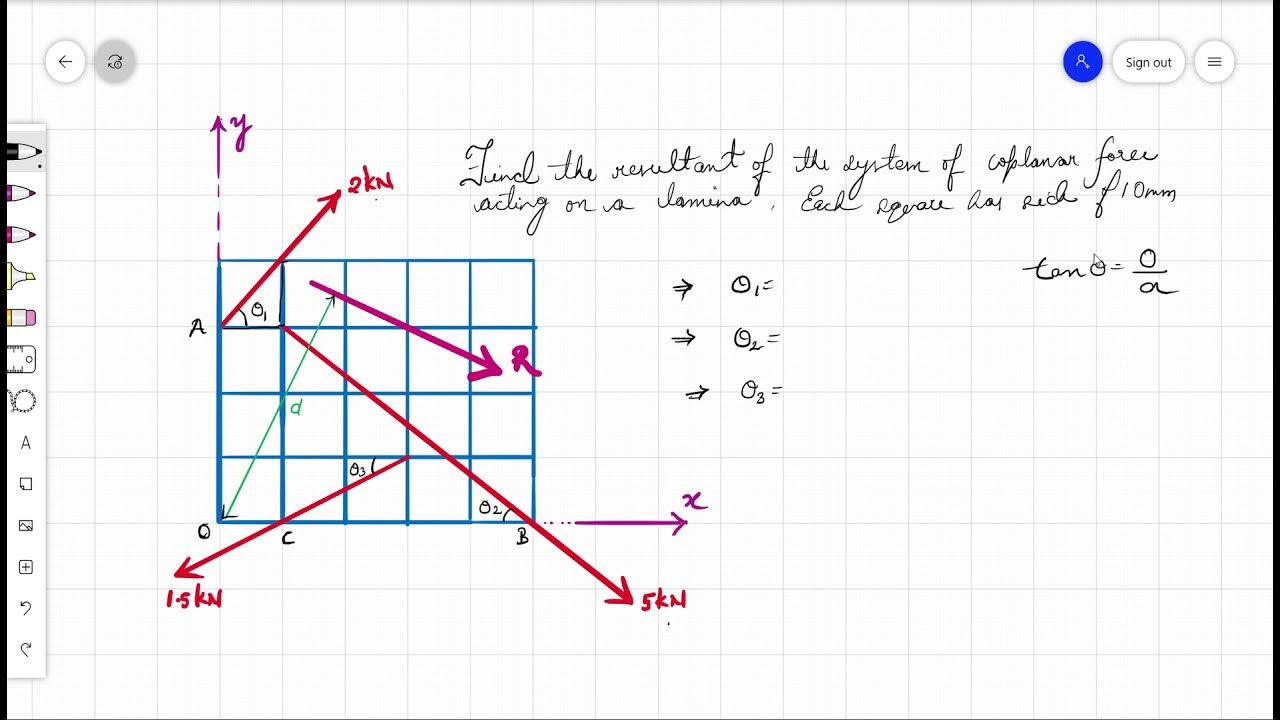 Sign out
y
2kN
Find the resultant of the system of coplanar force
acting on a lamina. Each square has side of 10mm
tan θ = O/a
⇒ θ1=
A
θ1
⇒ θ2=
R
⇒ θ3=
d
A
θ3
θ2
x
O
C
B
1.5kN
5kN